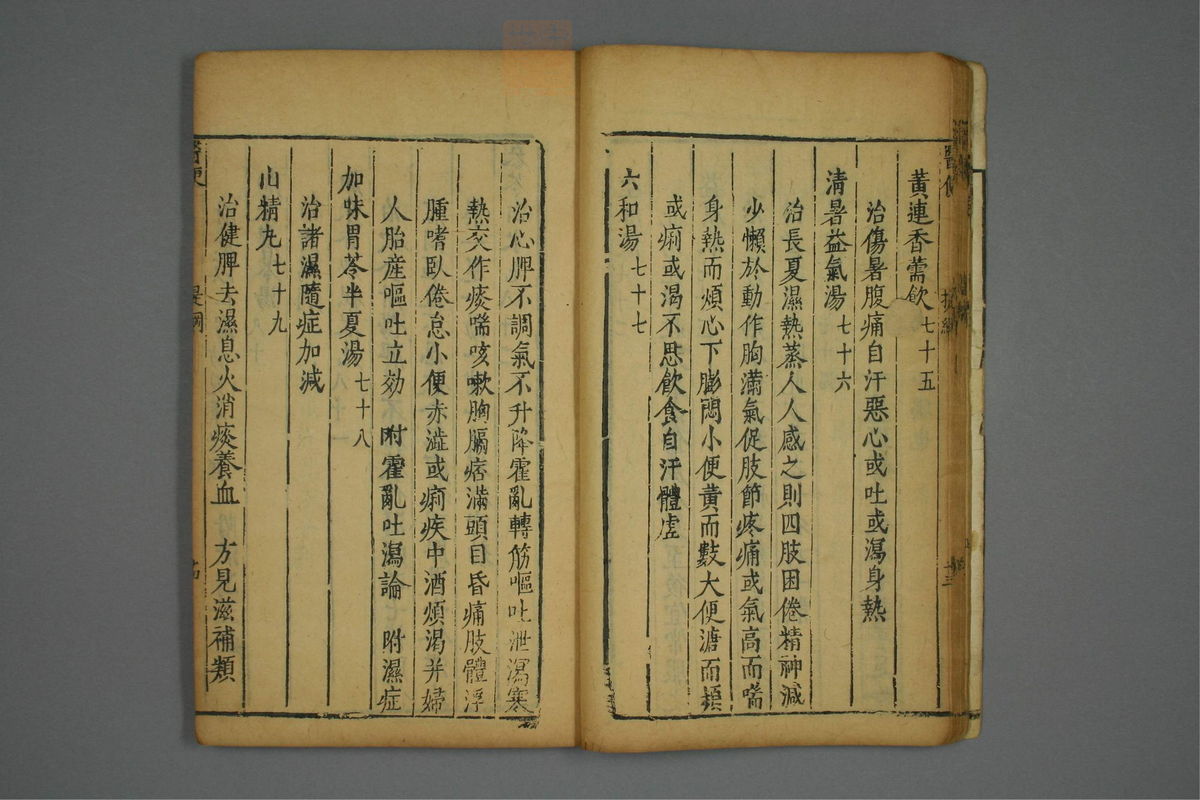 黃連香薷飲七十五
治傷暑腹痛自汗惡心或吐或瀉身熱
清暑益氣湯七十六
治長夏濕熱蒸人人感之則四肢困倦精神減
少懶於動作胸滿氣促肢節疼痛或氣高而喘
身熱而煩心下膨悶小便黃而數大便溏而頻
或痢或渴不思飲食自汗體虛
六和湯七十七
治心脾不調氣不升降霍亂轉筋嘔吐泄瀉寒
熱交作痰喘咳嗽胸膈痞滿頭目昏痛肢體浮
腫嗜臥倦怠小便赤澁或痢疾中酒煩渴并婦
人胎産嘔吐立効 附霍亂吐瀉論 附濕症
加味胃苓半夏湯七十八
治諸濕隨症加減
山精丸七十九
治健脾去濕息火消痰養血 方見滋補類
醫便 提綱